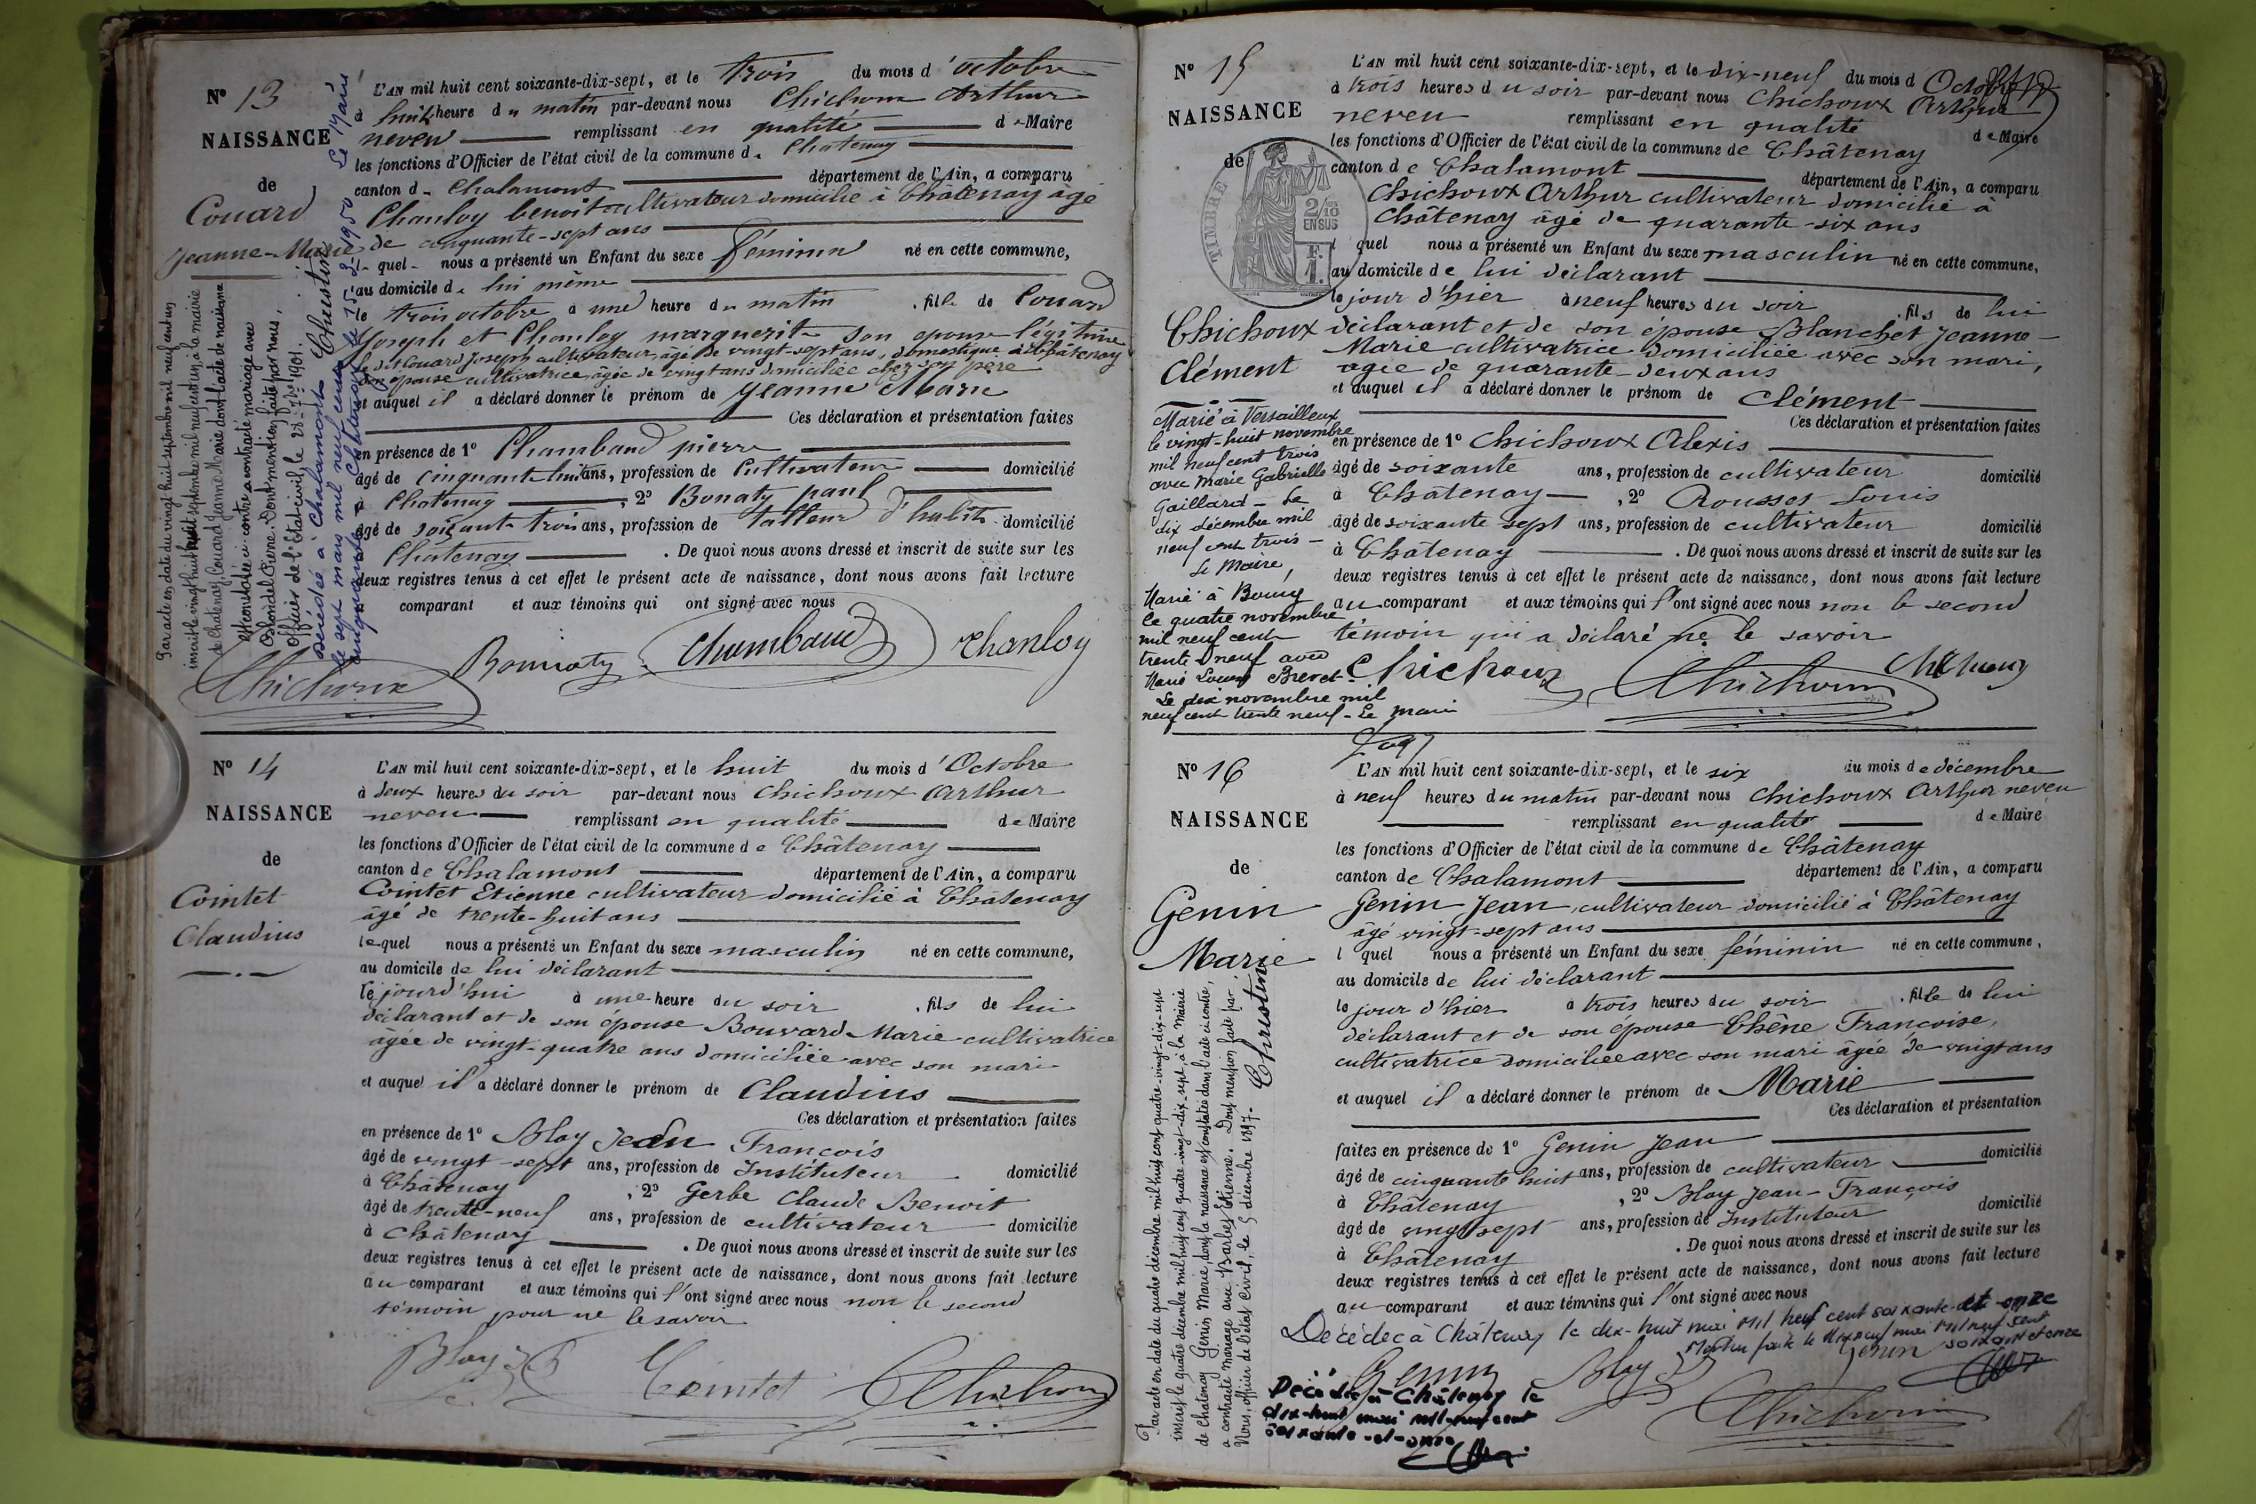 N° 13
NAISSANCE
de
Couard
Jeanne-Marie
L'AN mil huit cent soixante-dix-sept, et le trois du mois d'octobre
à huit heure du matin par-devant nous Chichoux Arthur
neveu remplissant en qualité de Maire
les fonctions d'Officier de l'état civil de la commune de Chatenay
canton de Chalamont département de l'Ain, a comparu
Chanloy benoit cultivateur domicilié à Châtenay âgé
de cinquante-sept ans
quel nous a présenté un Enfant du sexe féminin né en cette commune,
au domicile de lui même
le trois octobre à une heure du matin , fille de Couard
Joseph et Chanloy marguerite son epouse légitime
le dit Couard Joseph cultivateur, âgé de vingt-sept ans, domestique à Châtenay
son épouse cultivatrice, âgée de vingt ans domiciliée chez son père
et auquel il a déclaré donner le prénom de Jeanne Marie
Ces déclaration et présentation faites
en présence de 1° Chambaud pierre
âgé de cinquante huit ans, profession de Cultivateur domicilié
à Chatenay , 2° Bonaty paul
âgé de soixante trois ans, profession de tailleur d'habits domicilié
Chatenay . De quoi nous avons dressé et inscrit de suite sur les
deux registres tenus à cet effet le présent acte de naissance, dont nous avons fait lecture
comparant et aux témoins qui ont signé avec nous
Bonnaty Chambaud Chanloy
Chichoux
Par acte en date du vingt huit septembre mil neuf cent un
inscrit le vingt huit septembre mil neuf cent un, à la mairie
de Chatenay, Couard Jeanne Marie dont l'acte de naissance
est constatée ci-contre a contracté mariage avec
Blondel Pierre. Dont mention faite par nous,
Officier de l'état-civil, le 28 7bre 1901.
Chrestin
Décédée à Chalamont
le sept mars mil neuf cent
cinquante
N° 14
NAISSANCE
de
Cointet
Claudius
L'AN mil huit cent soixante-dix-sept, et le huit du mois d'Octobre
à deux heures du soir par-devant nous Chichoux Arthur
neveu remplissant en qualité de Maire
les fonctions d'Officier de l'état civil de la commune de Châtenay
canton de Chalamont département de l'Ain, a comparu
Cointet Etienne cultivateur domicilié à Châtenay
âgé de trente-huit ans
lequel nous a présenté un Enfant du sexe masculin né en cette commune,
au domicile de lui déclarant
le jourd'hui à une heure du soir , fils de lui
déclarant et de son épouse Bouvard Marie cultivatrice
âgée de vingt-quatre ans domiciliée avec son mari
et auquel il a déclaré donner le prénom de Claudius
Ces déclaration et présentation faites
en présence de 1° Blay Jean François
âgé de vingt-sept ans, profession de Instituteur domicilié
à Châtenay , 2° Gerbe Claude Benoit
âgé de trente-neuf ans, profession de cultivateur domicilié
à Châtenay . De quoi nous avons dressé et inscrit de suite sur les
deux registres tenus à cet effet le présent acte de naissance, dont nous avons fait lecture
au comparant et aux témoins qui l'ont signé avec nous non le second
témoin pour ne le savoir
Blay Cointet Chichoux
N° 15
NAISSANCE
de
TIMBRE
2/10 EN SUS
Chichoux
Clément
L'AN mil huit cent soixante-dix-sept, et le dix-neuf du mois d Octobre
à trois heures du soir par-devant nous Chichoux Arthur
neveu remplissant en qualité de Maire
les fonctions d'Officier de l'état civil de la commune de Châtenay
canton de Chalamont département de l'Ain, a comparu
Chichoux Arthur cultivateur domicilié à
Châtenay âgé de quarante-six ans
l quel nous a présenté un Enfant du sexe masculin né en cette commune,
au domicile de lui déclarant
le jour d'hier à neuf heures du soir , fils de lui
déclarant et de son épouse Blanchet Jeanne-
Marie cultivatrice domiciliée avec son mari,
agée de quarante-deux ans
et auquel il a déclaré donner le prénom de Clément
Ces déclaration et présentation faites
en présence de 1° Chichoux Alexis
âgé de soixante ans, profession de cultivateur domicilié
à Châtenay , 2° Rousset Louis
âgé de soixante sept ans, profession de cultivateur domicilié
à Châtenay . De quoi nous avons dressé et inscrit de suite sur les
deux registres tenus à cet effet le présent acte de naissance, dont nous avons fait lecture
au comparant et aux témoins qui l'ont signé avec nous non le second
témoin qui a déclaré ne le savoir
Chichoux Chichoux
Marié à Versailleux
le vingt-huit novembre
mil neuf cent trois
avec Marie Gabrielle
Gaillard - Le
dix décembre mil
neuf cent trois -
Le Maire,
Marié à Bourg
le quatre novembre
mil neuf cent
trente neuf avec
Marie Brevet.
Le dix novembre mil
neuf cent trente neuf - Le
N° 16
NAISSANCE
de
Genin
Marie
L'AN mil huit cent soixante-dix-sept, et le six du mois de décembre
à neuf heures du matin par-devant nous Chichoux Arthur neveu
remplissant en qualité de Maire
les fonctions d'Officier de l'état civil de la commune de Châtenay
canton de Chalamont département de l'Ain, a comparu
Genin Jean, cultivateur domicilié à Châtenay
âgé vingt-sept ans
l quel nous a présenté un Enfant du sexe féminin né en cette commune,
au domicile de lui déclarant
le jour d'hier à trois heures du soir , fille de lui
déclarant et de son épouse Chêne Françoise,
cultivatrice domiciliée avec son mari âgée de vingt ans
et auquel il a déclaré donner le prénom de Marie
Ces déclaration et présentation
faites en présence de 1° Genin Jean
âgé de cinquante huit ans, profession de cultivateur domicilié
à Châtenay , 2° Blay Jean-François
âgé de vingt sept ans, profession de Instituteur domicilié
à Châtenay . De quoi nous avons dressé et inscrit de suite sur les
deux registres tenus à cet effet le présent acte de naissance, dont nous avons fait lecture
au comparant et aux témoins qui l'ont signé avec nous
Décédée à Châtenay le dix-huit mai mil neuf cent soixante et onze
Mention faite le dix neuf mai mil neuf cent
soixante et onze
Genin Blay Genin
Chichoux
Décédée à Châtenay le
dix-huit mai mil-neuf cent
soixante-et-onze
Par acte en date du quatre décembre mil huit cent quatre-vingt-dix-sept
inscrit le quatre décembre mil huit cent quatre-vingt-dix-sept, à la Mairie
de Chatenay Genin Marie, dont la naissance est constatée dans l'acte ci-contre,
a contracté mariage avec Barlet Etienne. Dont mention faite par
Nous, officier de l'état civil, le 5 décembre 1897. Chrestin